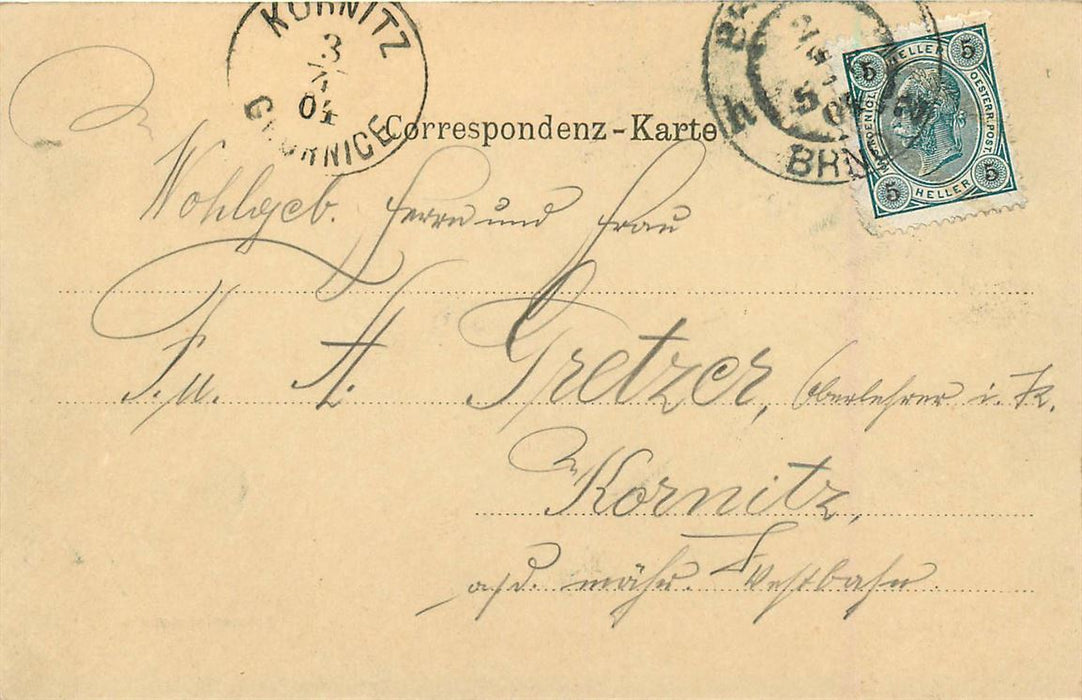 KORNITZ
3
04
Correspondenz-Karte
BRN
5 HELLER 5
OESTERR. POST.
5 HELLER 5
Wohlgeb. Herrn und Frau
F. u. A. Gretzer, Oberlehrer i. R.
Kornitz,
a/d. mähr. Westbahn.